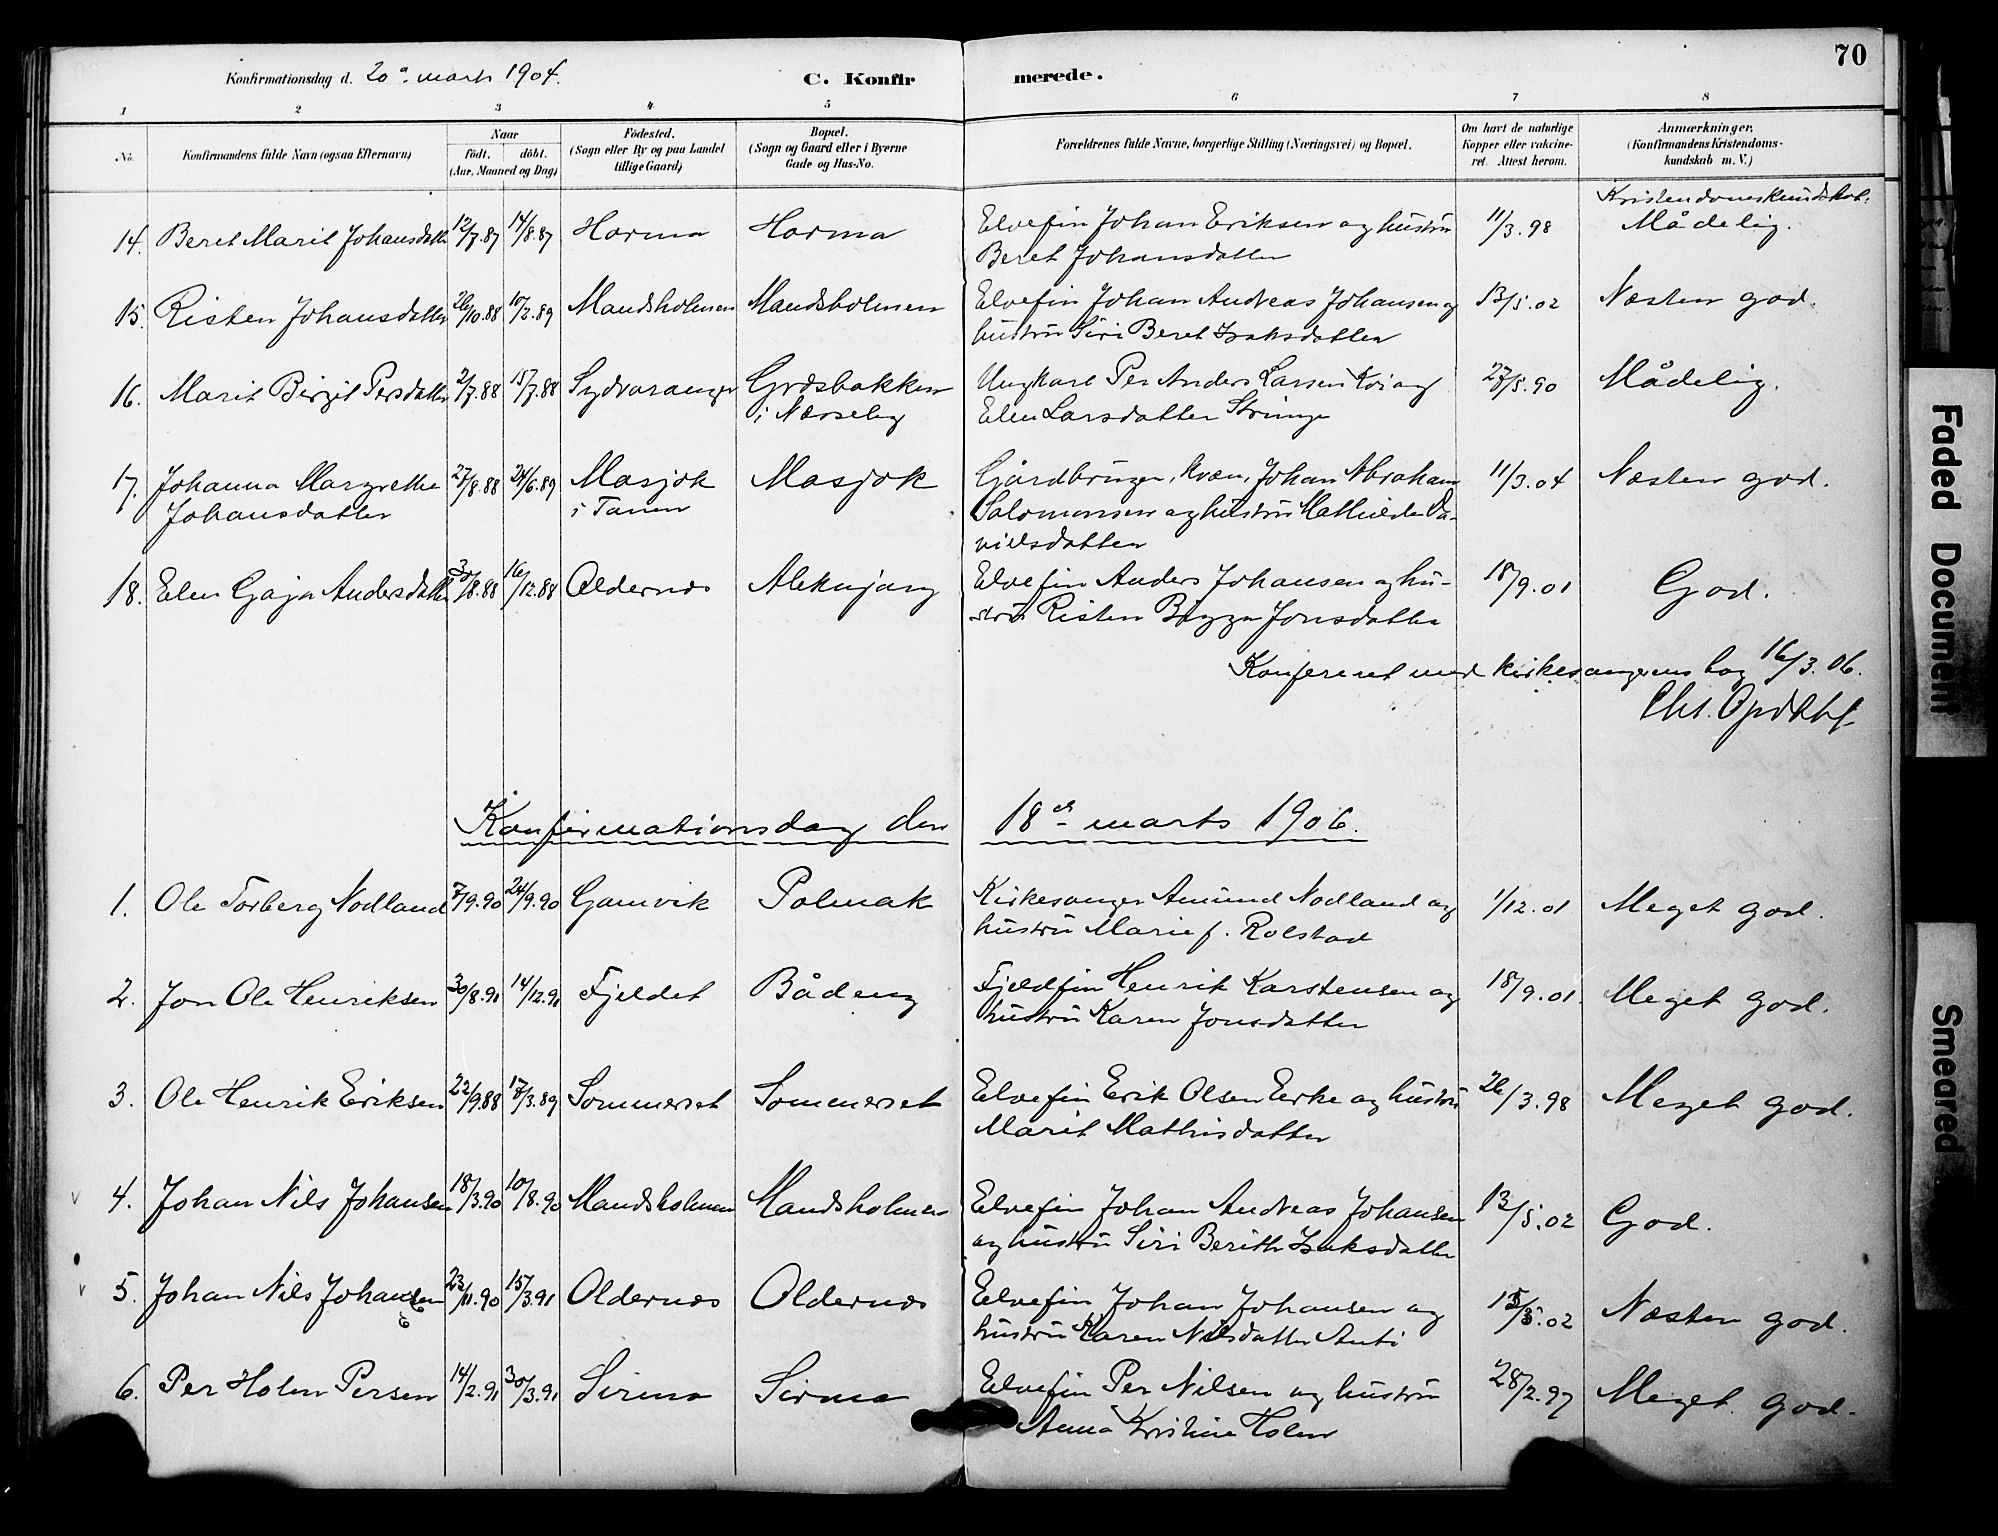 70
Konfirmationsdag d. 20de marts 1904.
C. Konfirmerede.
1 2 3 4 5 6 7 8
No. Konfirmandens fulde Navn (ogsaa Efternavn) Naar födt. döbt. (Aar, Maaned og Dag) Födested. (Sogn eller By og paa Landet tillige Gaard) Bopæl. (Sogn og Gaard eller i Byerne Gade og Hus-No. Forældrenes fulde Navne, borgerlige Stilling (Næringsvei) og Bopæl. Om havt de naturlige Kopper eller vakcineret. Attest herom. Anmærkninger. (Konfirmandens Kristendomskundskab m. V.)
Kristendomskundskab:
14. Beret Marit Johansdatter 12/7.87 14/8.87 Horma Horma Elvefin Johan Eriksen og hustru 11/3.98 Mådelig.
Beret Johansdatter
15. Risten Johansdatter 26/10.88 10/2.89 Mandsholmen Mandsholmen Elvefin Johan Andreas Johansen og 13/5.02 Næsten god.
hustru Siri Beret Isaksdatter
16. Marit Birgit Persdatter 2/7.88 15/7.88 Sydvaranger Græsbakken Ungkarl Per Anders Larsen og 27/5.90 Mådelig.
i Næsseby Elen Larsdatter
17. Johanna Margrethe 27/8.88 24/6.89 Masjok Masjok Gårdbruger, kvæn, Johan Abraham 11/3.04 Næsten god.
Johansdatter i Tanen Salomonsen og hustru Mathilde Da-
vidsdatter
18. Elen Gaja Andersdatter 30/8.88 16/12.88 Oldernes Aleknjarg Elvefin Anders Johansen og hu- 18/9.01 God.
stru Risten Bigga Jonsdatter
Konfereret med kirkesangerens bog 16/3.06.
Chr. Opdahl
Konfirmationsdag den 18de marts 1906.
1. Ole Torberg Nodland 7/9.90 24/9.90 Gamvik Polmak Kirkesanger Amund Nodland og 1/12.01 Meget god.
hustru Marie f. Rolstad
2. Jon Ole Henriksen 30/8.91 14/12.91 Fjeldet Bådeng Fjeldfin Henrik Karstensen og 18/9.01 Meget god.
hustru Karen Jonsdatter
3. Ole Henrik Eriksen 22/9.88 17/3.89 Sommerset Sommerset Elvefin Erik Olsen Eerke og hustru 26/3.98 Meget god.
Marit Mathisdatter
4. Johan Nils Johansen 18/3.90 10/8.90 Mandsholmen Mandsholmen Elvefin Johan Andreas Johansen 13/5.02 God.
og hustru Siri Berith Isaksdatter
5. Johan Nils Johansen 23/11.90 15/3.91 Oldernes Oldernes Elvefin Johan Johansen og 13/5.02 Næsten god.
hustru Karen Nilsdatter Anti
6. Per Holm Persen 14/2.91 30/3.91 Sirma Sirma Elvefin Per Nilsen og hustru 28/2.97 Meget god.
Anna Kristine Holm
Faded Document
Smeared